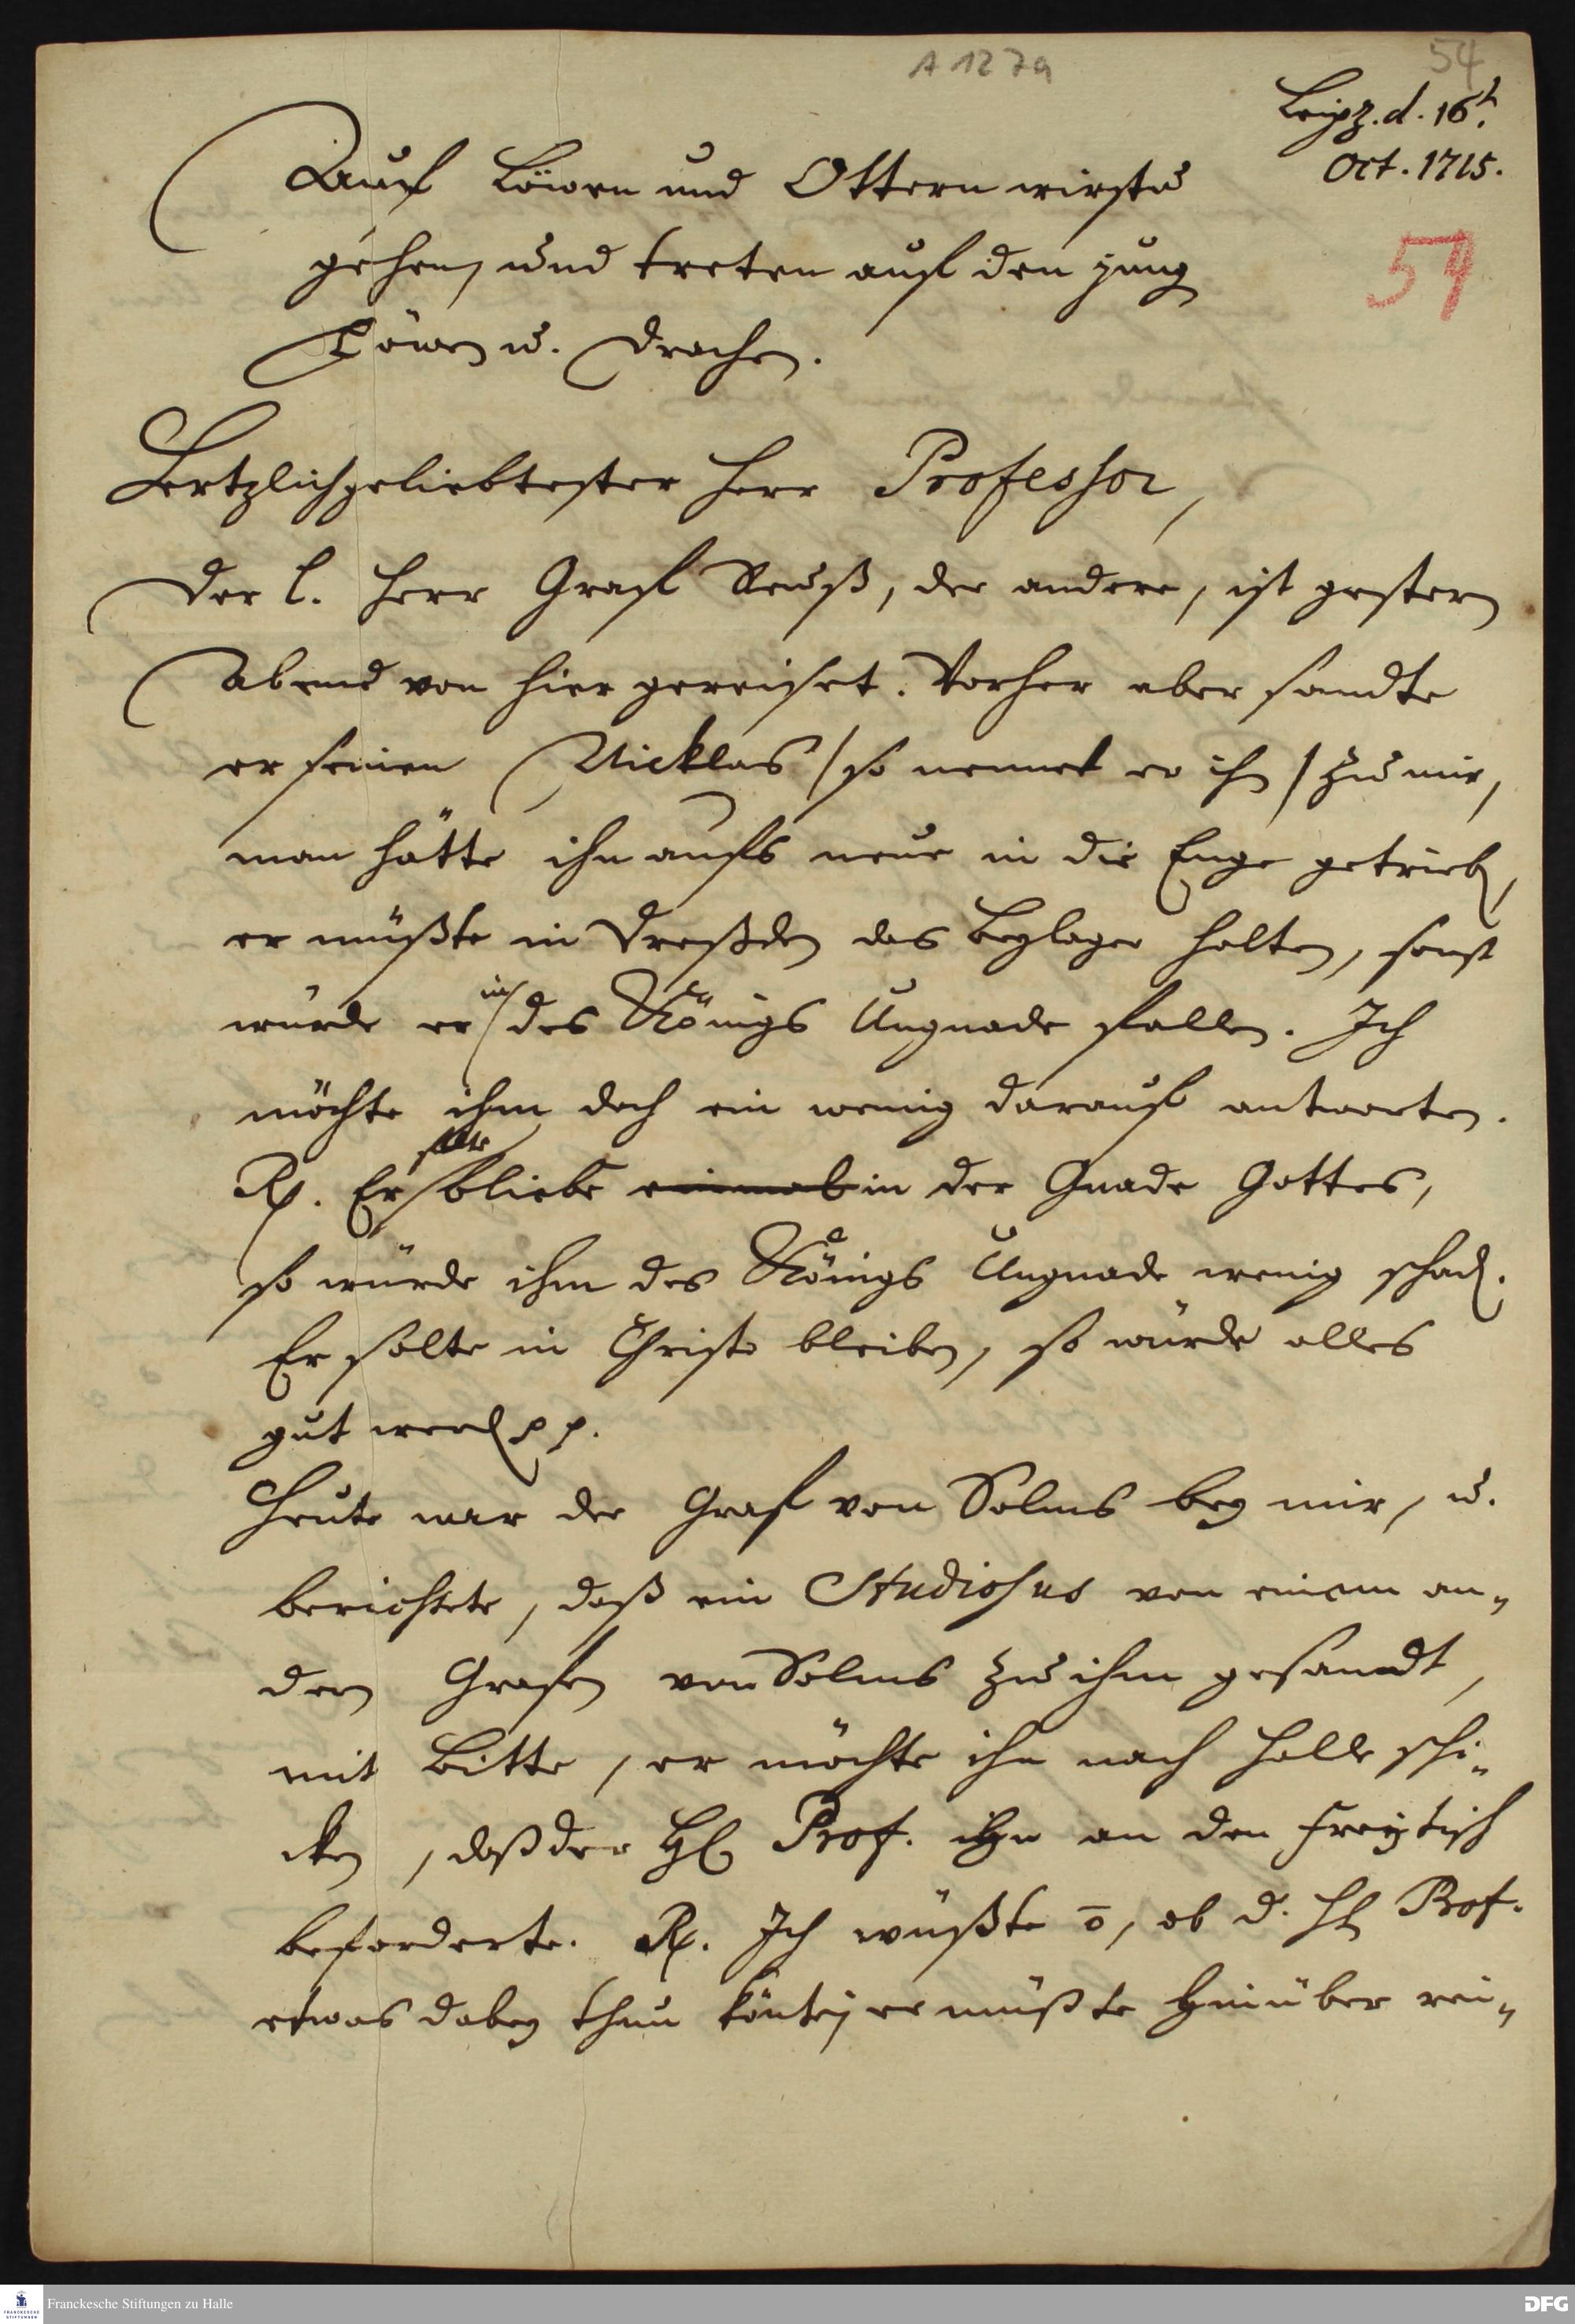 A 127a
54
Leipz. d. 16t.
Oct. 1715.
54
Auf Löwen und Ottern wirstu
gehen, und treten auf den jung
Löwen u. Drachen.
Hertzlichgeliebtester Herr Professor,
Der l. Herr Graf Reuß, der andere, ist gestern
Abend von hier gereiset. Vorher aber sandte
er seinen Nicklas /so nennet er ihn/ zu mir,
man hätte ihn aufs neue in die Enge getrieben,
er müßte in Dreßden das Beylager halten, sonst
würde er in des Königs Ungnade fallen. Ich
möchte ihm doch ein wenig darauf antworten.
Rp. Er bliebe einmal in der Gnade Gottes,
so würde ihm des Königs Ungnade wenig schaden.
Er solte in Christo bleiben, so würde alles
gut werden pp.
Heute war der Graf von Solms bey mir, u.
berichtete, daß ein Studiosus von einem an-
dern Grafen von Solms zu ihm gesandt,
mit Bitte, er möchte ihn nach Halle schi-
cken, daß der H. Prof. ihn an den Freytisch
beforderte. Rp. Ich wüßte õ, ob d. H. Prof.
etwas dabey thun könte, er müßte hinüber rei-
Franckesche Stiftungen zu Halle
DFG